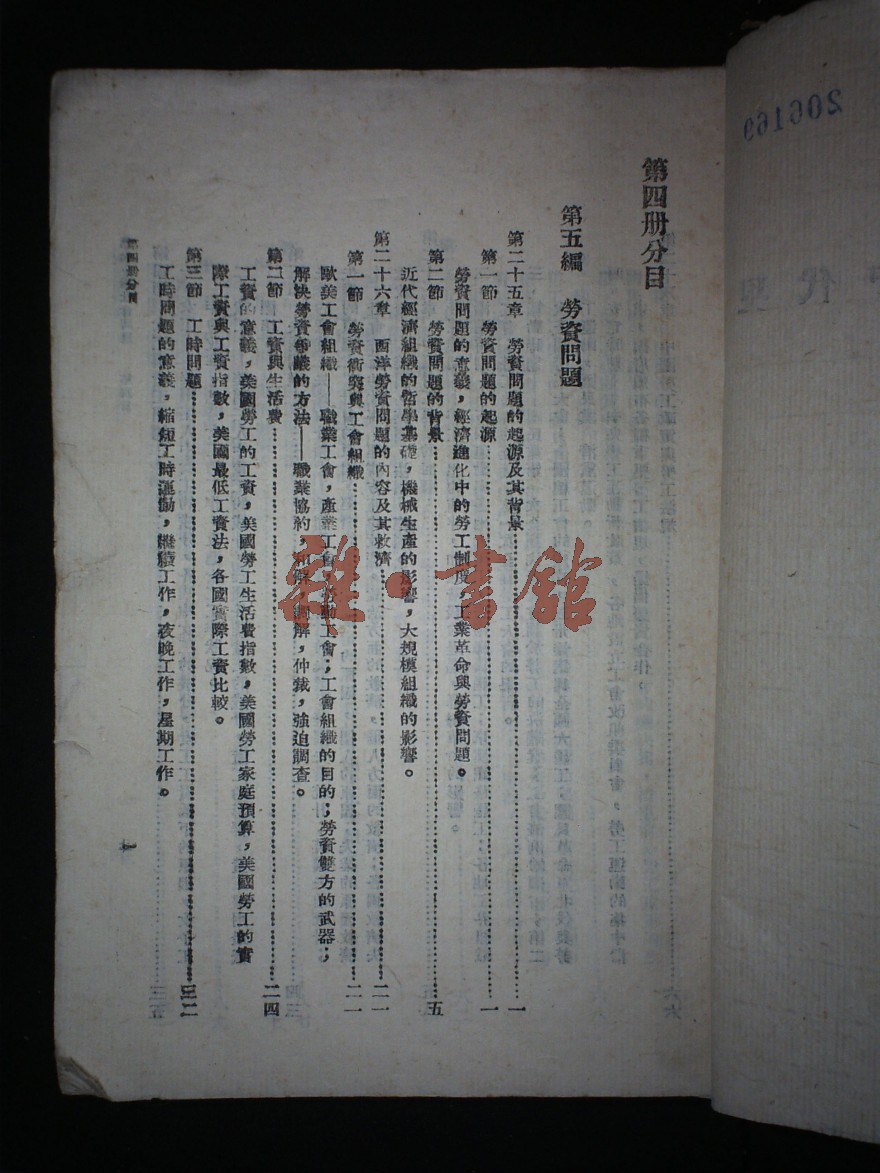 第四册分目
第五編　勞資問題
第二十五章　勞資問題的起源及其背景……一
第一節　勞資問題的起源……一
勞資問題的意義，經濟進化中的勞工制度，工業革命與勞資問題。
第二節　勞資問題的背景……五
近代經濟組織的哲學基礎，機械生產的影響，大規模組織的影響。
第二十六章　西洋勞資問題的內容及其救濟……一一
第一節　勞資衝突與工會組織……一一
歐美工會組織——職業工會，產業工會，勞動工會；工會組織的目的；勞資雙方的武器；
解決勞資爭議的方法——職業協約，和解，調解，仲裁，強迫調查。
第二節　工資與生活費……二四
工資的意義，美國勞工的工資，美國勞工生活費指數，美國勞工家庭預算，美國勞工的實
際工資與工資指數，美國最低工資法，各國實際工資比較。
第三節　工時問題……三二
工時問題的意義，縮短工時運動，繼續工作，夜晚工作，星期工作。
第四册分目
一
206169
雜·書館